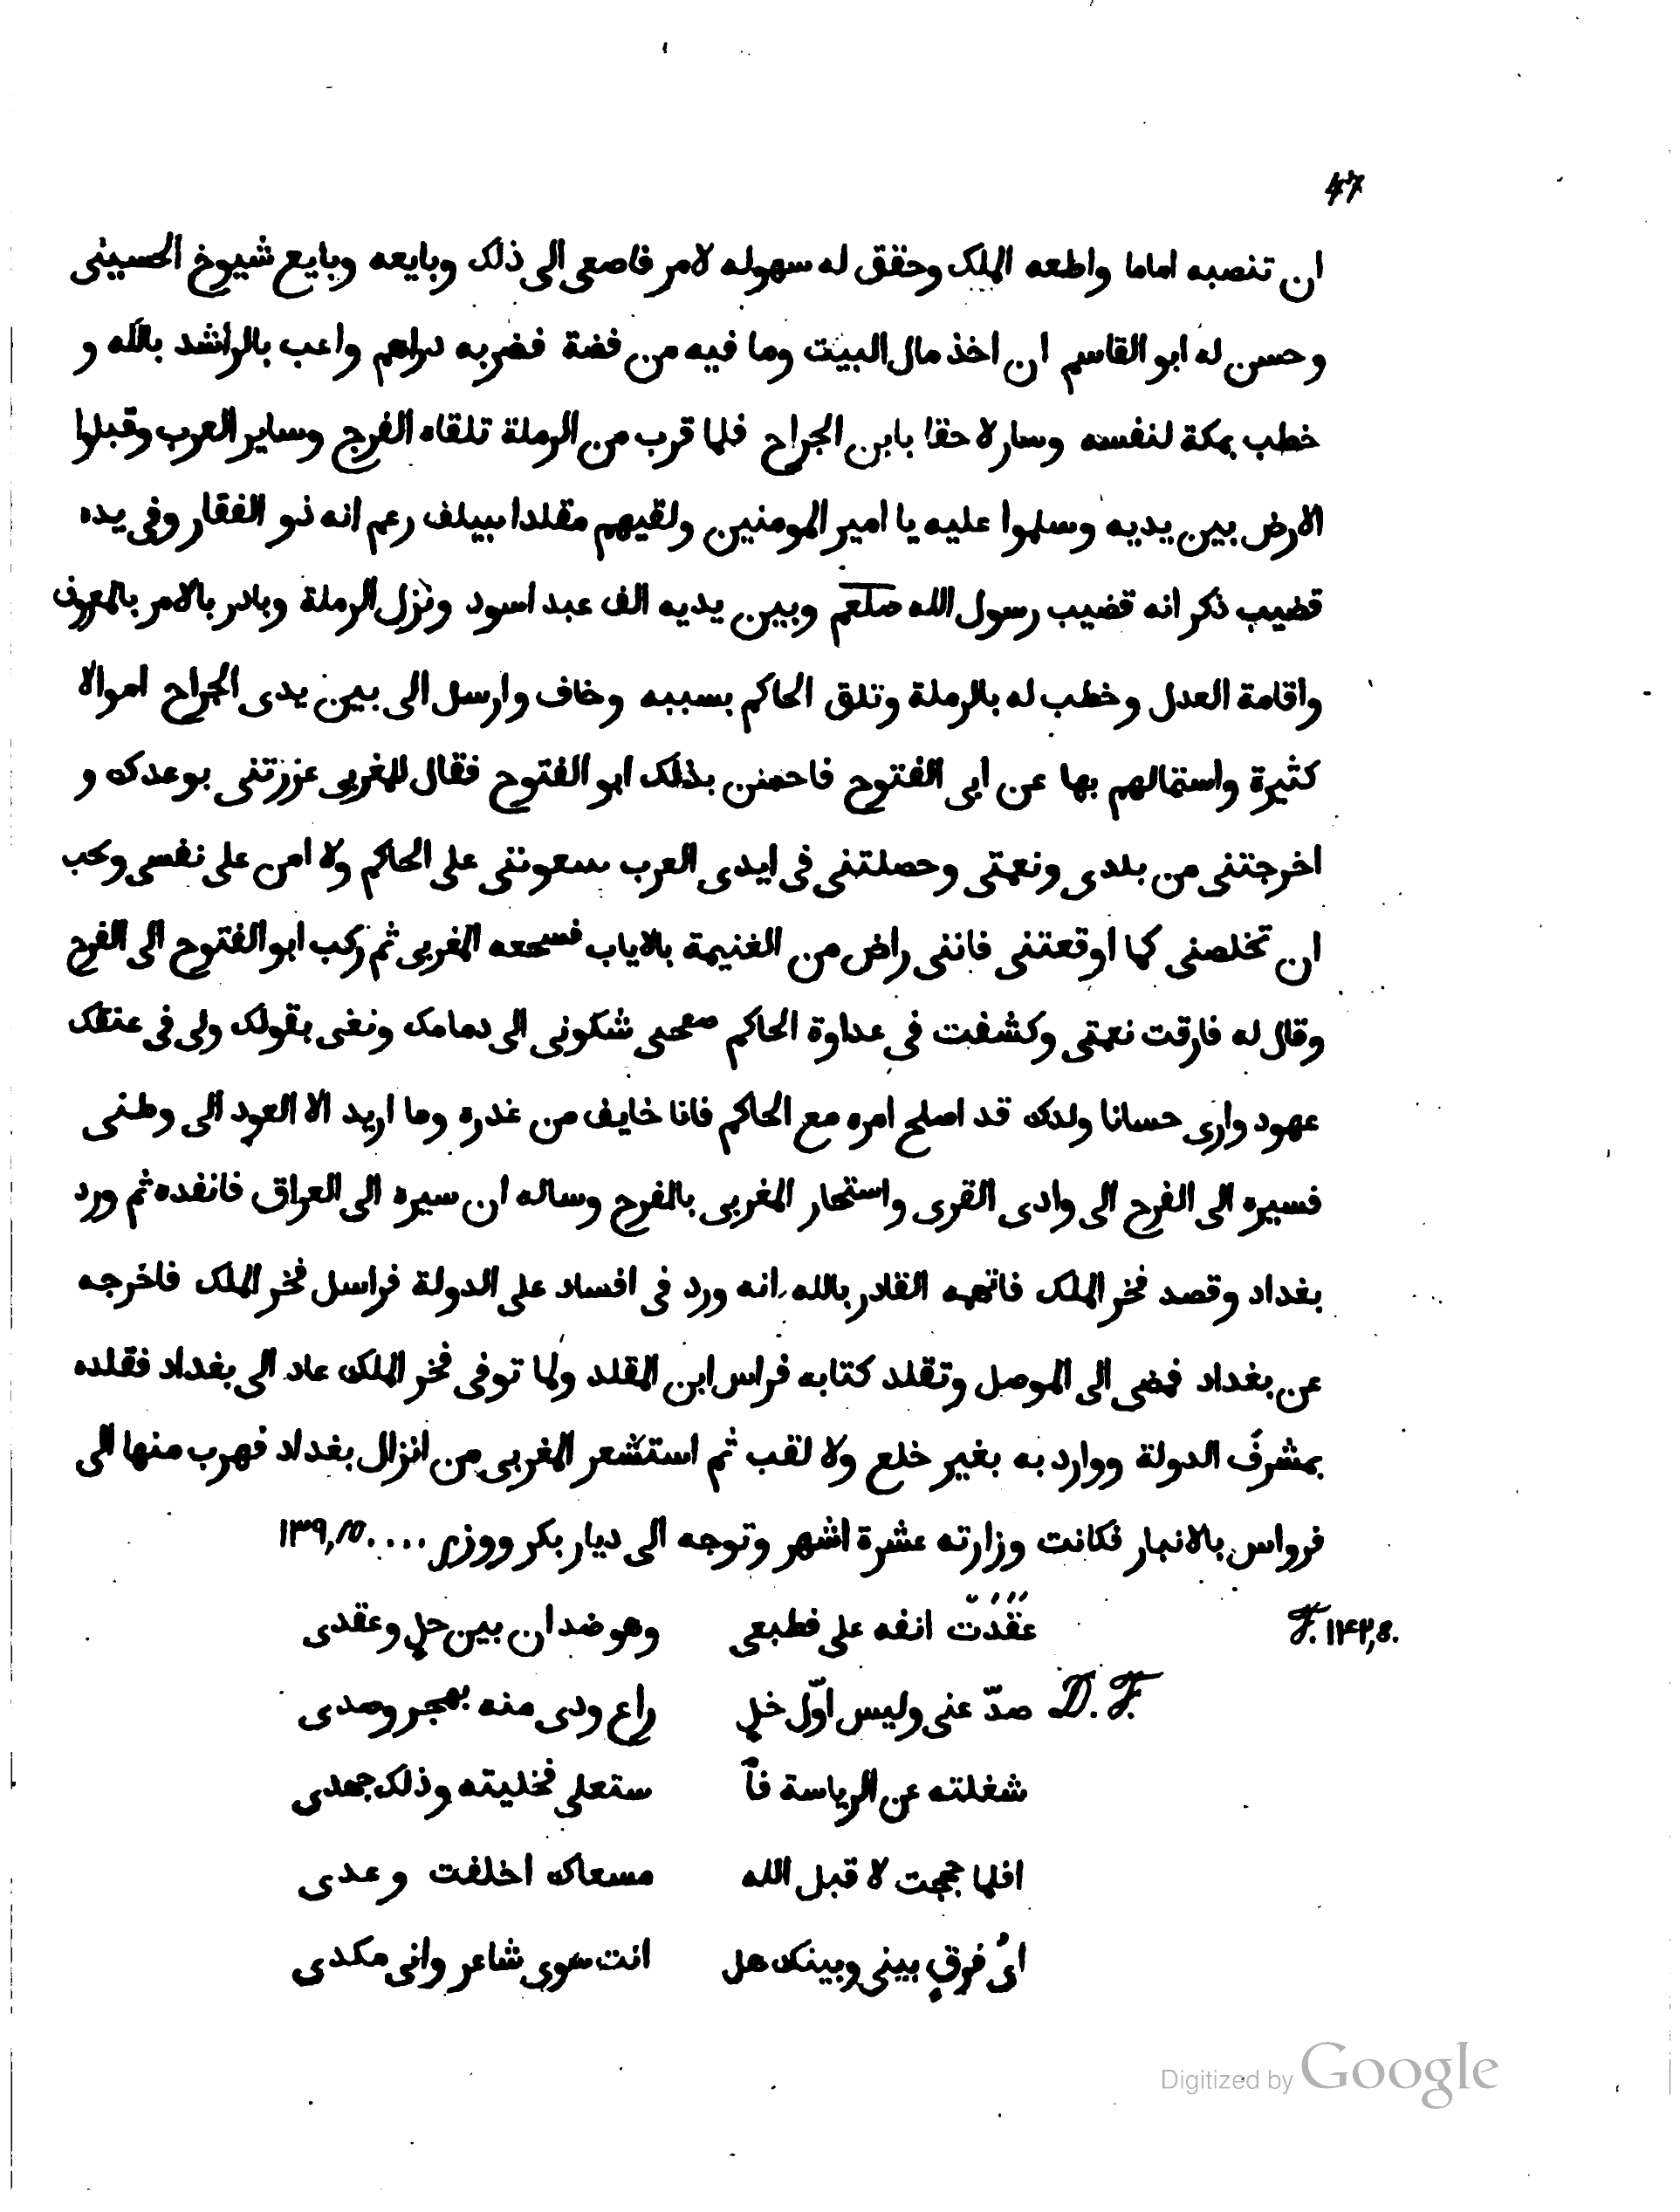 47
ان تنصبه اماما واطعه الملك وحقق له سهوله لامر فاصعى الى ذلك وبايعه وبايع شيوخ الحسينى
وحسن له ابو القاسم ان اخذ مال البيت وما فيه من فضة فضربه دراهم واعب بالراشد بالله و
خطب بمكة لنفسه وسار لاحقا بابن الجراح فلما قرب من الرملة تلقاه الفرج وساير العرب وقبلوا
الارض بين يديه وسلموا عليه يا امير المومنين ولقيهم مقلدا سيلف رعم انه ذو الفقار وفى يده
قضيب ذكر انه قضيب رسول الله صلعم وبين يديه الف عبد اسود ونزل الرملة وبادر بالامر بالمعروف
واقامة العدل وخطب له بالرملة وتلق الحاكم بسببه وخاف وارسل الى بين يدى الجراح اموالا
كثيرة واستمالهم بها عن ابى الفتوح فاحسن بذلك ابو الفتوح فقال للمغربى عززتنى بوعدك و
اخرجتنى من بلدى ونعمتى وحصلتنى فى ايدى العرب سعوننى على الحاكم ولا امن على نفسى وكب
ان تخلصنى كما اوقعتنى فاننى راض من الغنيمة بالاياب فسحعه المغربى ثم ركب ابو الفتوح الى الفرج
وقال له فارقت نعمتى وكشفت فى عداوة الحاكم شكونى الى دمامك ونغى بقولك ولى فى عنقك
عهود وارى حسانا ولدك قد اصلح امره مع الحاكم فانا خايف من غدره وما اريد الا العود الى وطنى
فسيره الى الفرج الى وادى القرى واستحار المغربى بالفرج وساله ان سيره الى العراق فانفده ثم ورد
بغداد وقصد فخر الملك فاتهمه القادر بالله انه ورد فى افساد على الدولة فراسل فخر الملك فاخرجه
عن بغداد فمضى الى الموصل وتقلد كتابه فراس ابن المقلد ولما توفى فخر الملك عاد الى بغداد فقلده
بمشرف الدولة ووارد به بغير خلع ولا لقب ثم استشعر المغربى من انزال بغداد فهرب منها الى
فرواس بالانبار فكانت وزارته عشرة اشهر وتوجه الى ديار بكر ووزر .... ۱۳۹,۱۵
F. ۱۴۲,8. عَقَدُتْ انفه على فطبعى وهو ضدان بين حلٍ وعقدى
D. F. صدّ عنى وليس اوّل خلٍ راع ودى منه بهجر وصدى
شغلته عن الرياسة فآ ستعلى فخليته وذلك جهدى
افلما حججت لا قبل الله مسعاك اخلفت وعدى
اىُ فرقٍ بينى وبينك هل انت سوى شاعر وانى مكدى
Digitized by Google